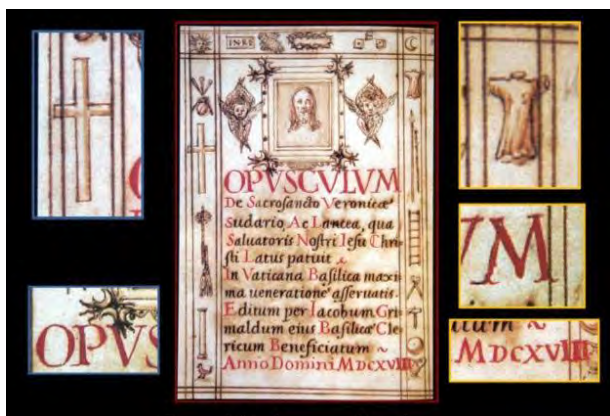 INRI
OPVSCVLVM
De Sacrosancto Veronicæ
Sudario, Ac Lancea, qua
Saluatoris Nostri Iesu Chri-
sti Latus patuit
In Vaticana Basilica maxi-
ma ueneratione asseruatis.
Editum per Iacobum Gri-
maldum eius Basilicæ Cle-
ricum Beneficiatum ~
Anno Domini MDCXVIII
OPVS
VM
~
MDCXVIII